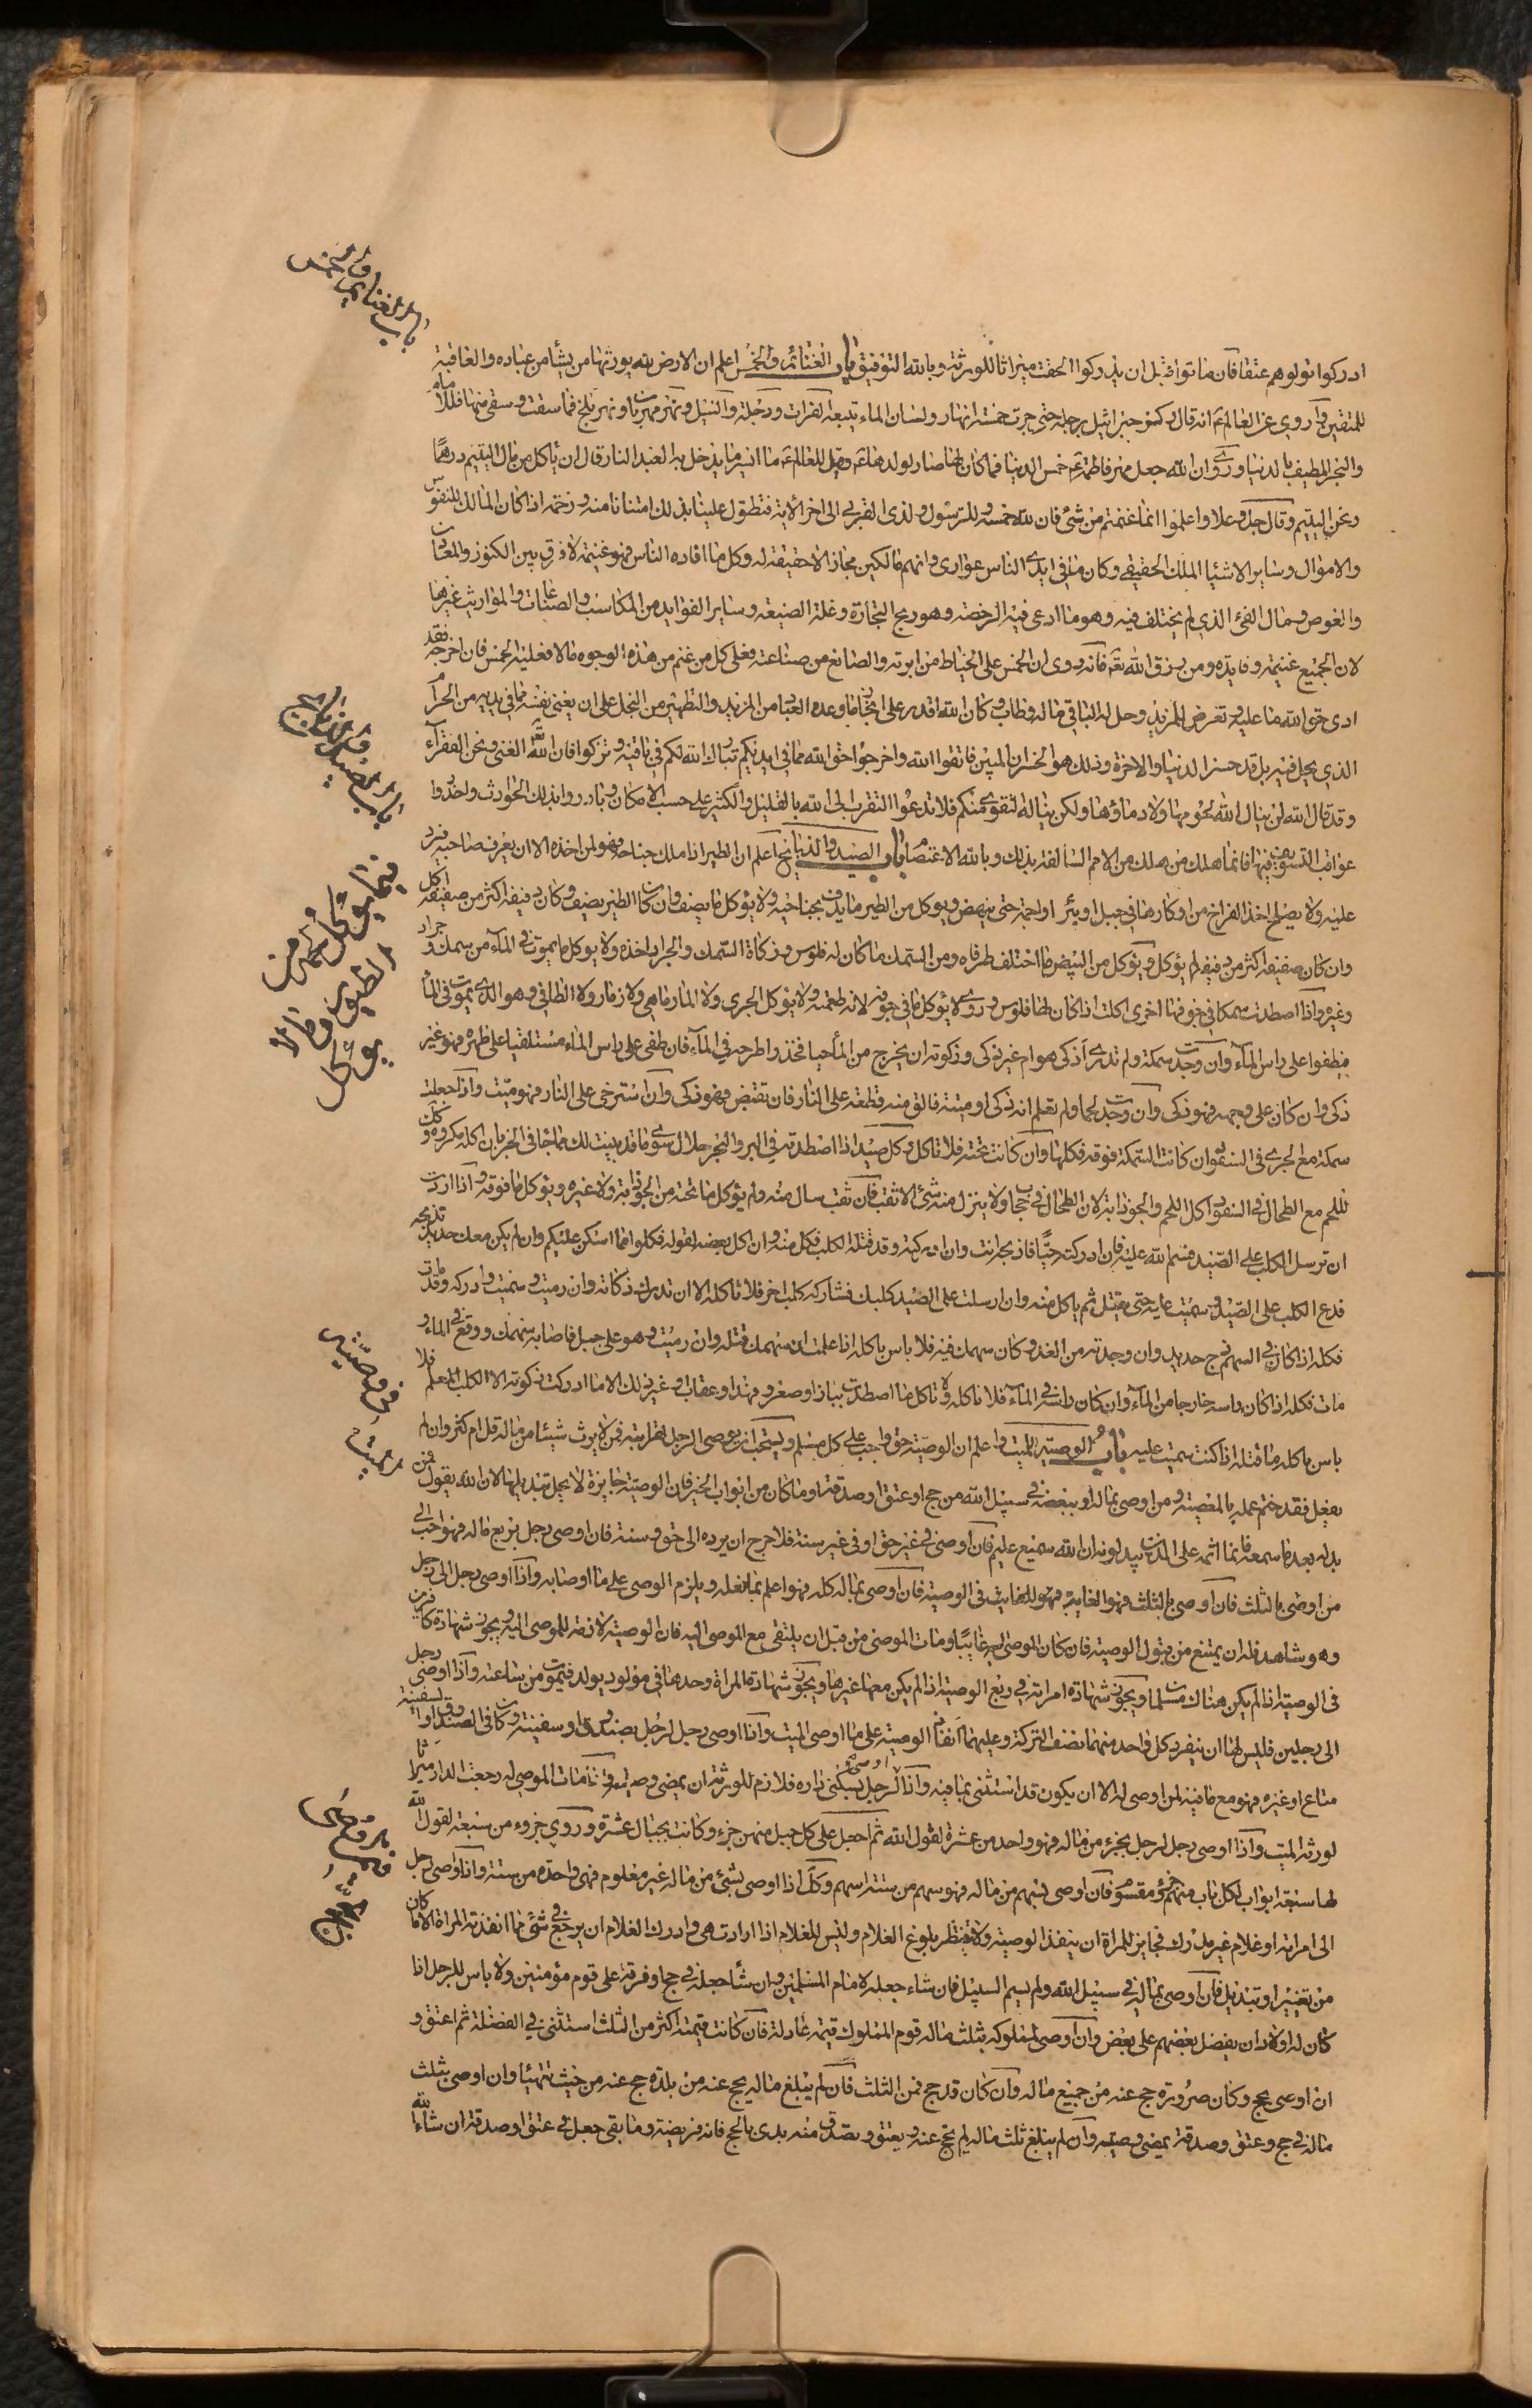 ادركوا تولوهم عتقا فان ماتوا قبل ان يدركوا الحقت ميراثا للورثة وبالله التوفيق باب الغنائم والخمس اعلم ان الارض لله يورثها من يشأ من عباده والعاقبة
للمتقين وأروي عن العالم ع انه قال ركز جبرائيل برجله حتى جرت خمسة انهار ولسان الماء يتبعه الفرات ودجلة والنيل ونهر مهربان ونهر بلخ فما سقت وسقى منها فللامام
والبحر المطيف بالدنيا وروى ان الله جعل مهر فاطمة ع خمس الدنيا فما كان لها صار لولدها ع وقيل للعالم ع ما ايسر ما يدخل به العبد النار قال ان ياكل من مال اليتيم درهما
ونحن اليتيم وقال جل وعلا واعلموا انما غنمتم من شئ فان لله خمسه وللرسول ولذى القربى الى اخر الاية فتطول علينا بذلك امتنانا منه ورحمة اذا كان المالك للنفوس
والاموال وساير الاشيا الملك الحقيقى وكان ما في ايدي الناس عوارى وانهم مالكين مجازا لا حقيقة له وكل ما افاده الناس فهو غنيمة لا فرق بين الكنوز والمعادن
والغوص ومال الفئ الذي لم يختلف فيه وهو ما ادعى فيه الرخصة وهو ربح التجارة وغلة الضيعة وساير الفوايد من المكاسب والصناعات والمواريث غيرها
لان الجميع غنيمة وفايدة ومن رزق الله تع فانه روى ان الخمس على الخياط من ابرته والصانع من صناعته فعلى كل من غنم من هذه الوجوه مالا فعليه الخمس فان اخرجه فقد
ادى حق الله ما عليه وتعرض للمزيد وحل له الباقي ماله وطاب وكان الله اقدر على انجاز ما وعده العباد من المزيد والتطهير من البخل على ان يغنى نفسه مما في يديه من الحرام
الذي بخل فيه بل قد خسر الدنيا والاخرة وذلك هو الخسران المبين فاتقوا الله واخرجوا حق الله مما في ايديكم تبارك الله لكم في باقيه وتزكوا فان الله الغنى ونحن الفقرآء
وقد قال الله لن ينال الله لحومها ولا دماؤها ولكن يناله التقوى منكم فلا تدعوا التقرب الى الله بالقليل والكثير على حسب الامكان وبادروا بذلك الحوادث واحذروا
عواقب التسويف فيها فانما هلك من هلك من الامم السالفة بذلك وبالله الاعتصام باب الصيد والذبايح اعلم ان الطير اذا ملك جناحه فهو لمن اخذه الا ان يعرف صاحبه فيرد
عليه ولا يصلح اخذ الفراخ من اوكارها في جبل او بئر او اجمة حتى ينهض ويوكل من الطير ما يدف بجناحيه ولا يؤكل ما يصف وان كان الطير يصف وكان دفيفه اكثر من صفيفه اكل
وان كان صفيفه اكثر من دفيفه لم يؤكل ويؤكل من البيض ما اختلف طرفاه ومن السمك ما كان له فلوس وزكاة السمك والجراد اخذه ولا يوكل ما يموت في المآء من سمك وجراد
وغيره واذا اصطدت سمكا في جوفها اخرى اكلت اذا كان لها فلوس وروى لا يؤكل ما في جوفه لانه طعمته ولا يؤكل الجرى ولا المارماهي ولا زمار ولا الطافي وهو الذى يموت في المأ
فيطفوا على راس المآء وان وجدت سمكة ولم تدرى أذكى هو ام غير ذكى وذكوته ان يخرج من المأ حيا فخذ واطرحه في المآء فان طفى على راس الماء مستلقيا على ظهره فهو غير
ذكى وان كان على وجهه فهو ذكى وان وجدت لحما ولم تعلم انه ذكى او ميتة فالق منه قطعة على النار فان تقبض فهو ذكى وان استرخى على النار فهو ميت واذا جعلت
سمكة مع الجرى في السفود ان كانت السمكة فوقه فكلها وان كانت تحته فلا تاكل وكل صيد اذا اصطدته في البر والبحر حلال سوى ما قد بينت لك مما جآ في الخبر بان اكله مكروه وكل
للحم مع الطحال في السفود اكل اللحم والجوذابة لان الطحال في حجاب ولا ينزل منه شئ الا ثقب فان ثقب سال منه ولم يؤكل ما تحته من الجوذابة ولا غيره ويؤكل ما فوقه واذا اردت
ان ترسل الكلب على الصيد فسم الله عليه فان ادركته حيا فاذبحه انت وان ادركته وقد قتله الكلب فكل منه وان اكل بعضه لقوله فكلوا مما امسكن عليكم وان لم يكن معك حديد تذبحه
فدع الكلب على الصيد وسميت عليه حتى يقتل ثم ياكل منه وان ارسلت على الصيد كلبك فشاركه كلب اخر فلا تاكله الا ان تدرك ذكاته وان رميت وسميت وادركه وقد مات
فكله اذا كان في السهم زج حديد وان وجدته من الغد وكان سهمك فيه فلا باس باكله اذا علمت ان سهمك قتله وان رميت وهو على جبل فاصابه سهمك ووقع في الماء و
مات فكله اذا كان راسه خارجا من المآء وان كان راسه في المآء فلا تاكله ولا تاكل ما اصطدت بباز او صقر او فهد او عقاب وغير ذلك الا ما ادركت ذكوته الا الكلب المعلم فلا
باس باكله ما قتله اذا كنت سميت عليه باب الوصية للميت واعلم ان الوصية حق واجب على كل مسلم ويستحب ان يوصى الرجل لقرابته فمن لا يرث شيئا من ماله قل ام كثر وان لم
يفعل فقد ختم عمله بالمعصية ومن اوصى بماله او ببعضه في سبيل الله من حج او عتق او صدقة او ما كان من ابواب الخير فان الوصية جايزة لا يحل تبديلها لان الله يقول فمن
بدله بعد ما سمعه فانما اثمه على الذين يبدلونه ان الله سميع عليم فان اوصى في غير حق او في غير سنة فلا حرج ان يرده الى حق وسنة فان اوصى رجل بربع ماله فهو احب الى
من اوصى بالثلث فان اوصى بالثلث فهو الغاية في الوصية فان اوصى بماله كله فهو اعلم بما فعله ويلزم الوصى على ما اوصا به واذا اوصى رجل الى رجل
وهو شاهد فله ان يمتنع من قبول الوصية فان كان الموصى اليه غايبا ومات الموصى من قبل ان يلتقى مع الموصى اليه فان الوصية لازمة للموصى اليه ويجوز شهادة كافرين
في الوصية اذا لم يكن هناك مسلما ويجوز شهادة امراة في ربع الوصية اذا لم يكن معها غيرها ويجوز شهادة المراة وحدها في مولود يولد فيموت من ساعته واذا اوصى رجل
الى رجلين فليس لهما ان ينفرد كل واحد منهما بنصف التركة وعليهما انفاذ الوصية على ما اوصى الميت واذا اوصى رجل لرجل بصندوق او سفينة وكان في الصندوق او السفينة
متاع او غيره فهو مع ما فيه لمن اوصى له الا ان يكون قد استثنى بما فيه واذا اوصى لرجل بسكنى داره فلازم للورثة ان يمضى وصيته واذا مات الموصى له رجعت الدار ميراثا
لورثة الميت واذا اوصى رجل لرجل بجزء من ماله فهو واحد من عشرة لقول الله ثم اجعل على كل جبل منهن جزء وكانت الجبال عشرة وروى جزوء من سبعة لقول الله
لها سبعة ابواب لكل باب منهم جزء مقسوم فان اوصى بسهم من ماله فهو سهم من ستة اسهم وكذا اذا اوصى بشئ من ماله غير معلوم فهى واحدة من ستة واذا اوصى رجل
الى امراته او غلام غير مدرك فجايز للمراة ان ينفذ الوصية ولا تنتظر بلوغ الغلام وليس للغلام اذا ارادت هى وادرك الغلام ان يرجع في شئ مما انفذته المراة الا ما كان
من تغيير او تبديل فان اوصى بماله في سبيل الله ولم يسم السبيل فان شاء جعله لامام المسلمين وان شأ جعله في حج او فرقه على قوم مؤمنين ولا باس للرجل اذا
كان له اولاد ان يفضل بعضهم على بعض وان اوصى لمملوكه بثلث ماله قوم المملوك قيمة عادلة فان كانت قيمته اكثر من الثلث استثنى في الفضلة ثم اعتق و
ان اوصى بحج وكان صرورة حج عنه من جميع ماله وان كان قد حج فمن الثلث فان لم يبلغ ماله يحج عنه من بلده حج عنه من حيث تهيئا وان اوصى بثلث
ماله في حج وعتق وصدقة يمضى وصيته وان لم يبلغ ثلث ماله لم يحج عنه ويعتق ويصدق منه بدى بالحج فانه فريضة وما بقى جعل في عتق او صدقة ان شاء الله
باب الغنايم والخمس
باب الصيد والذبايح
فيما يؤكل لحمه من
الطيور وما لا
يوكل
في وصية
الميت